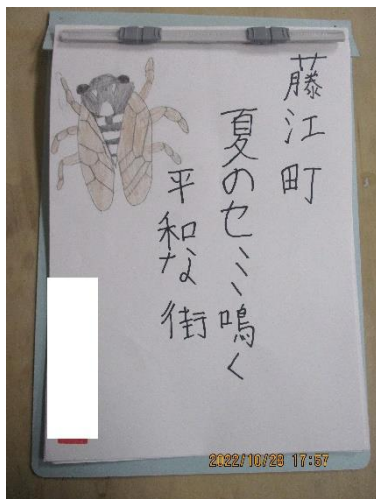 藤江町
夏のセミ鳴く
平和な街
2022/10/28 17:57